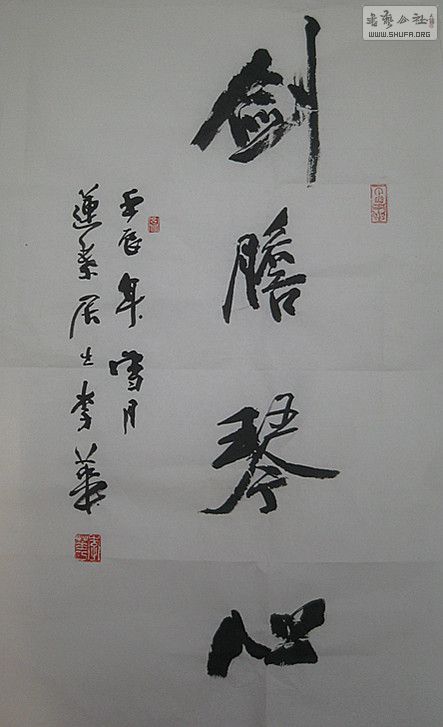 劍膽琴心
壬辰年雪月
蓮素居士李華
書藝公社
WWW.SHUFA.ORG